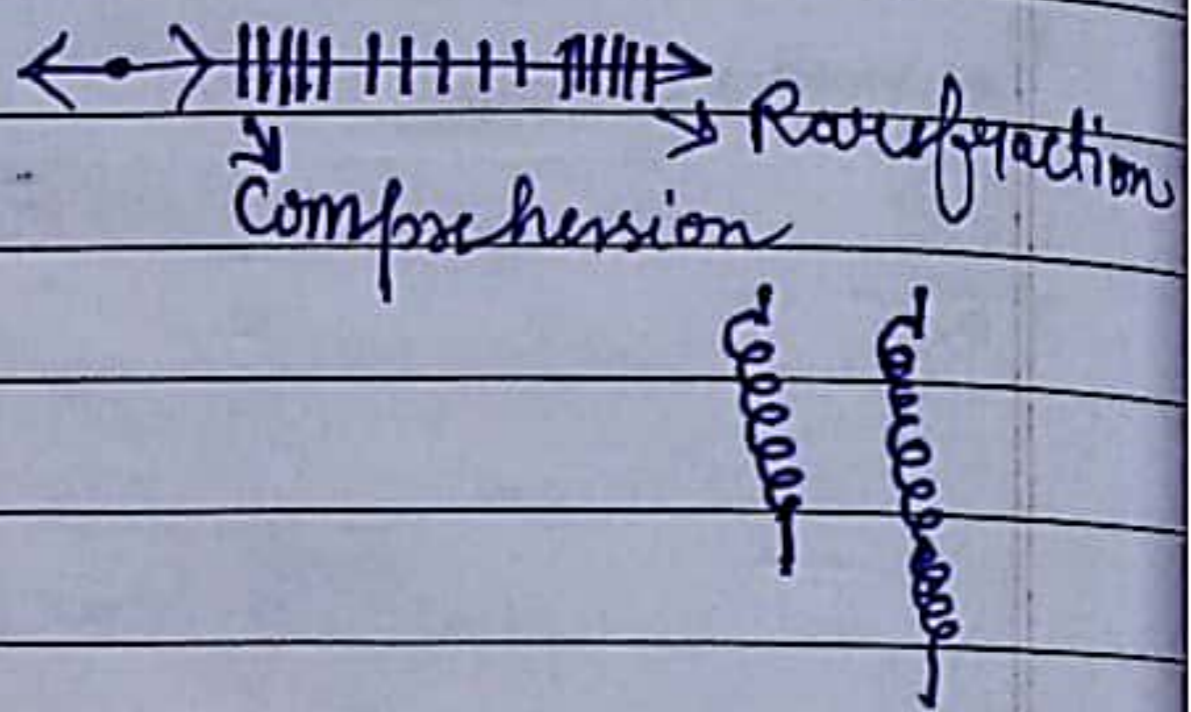 Rarefraction
Comprehension